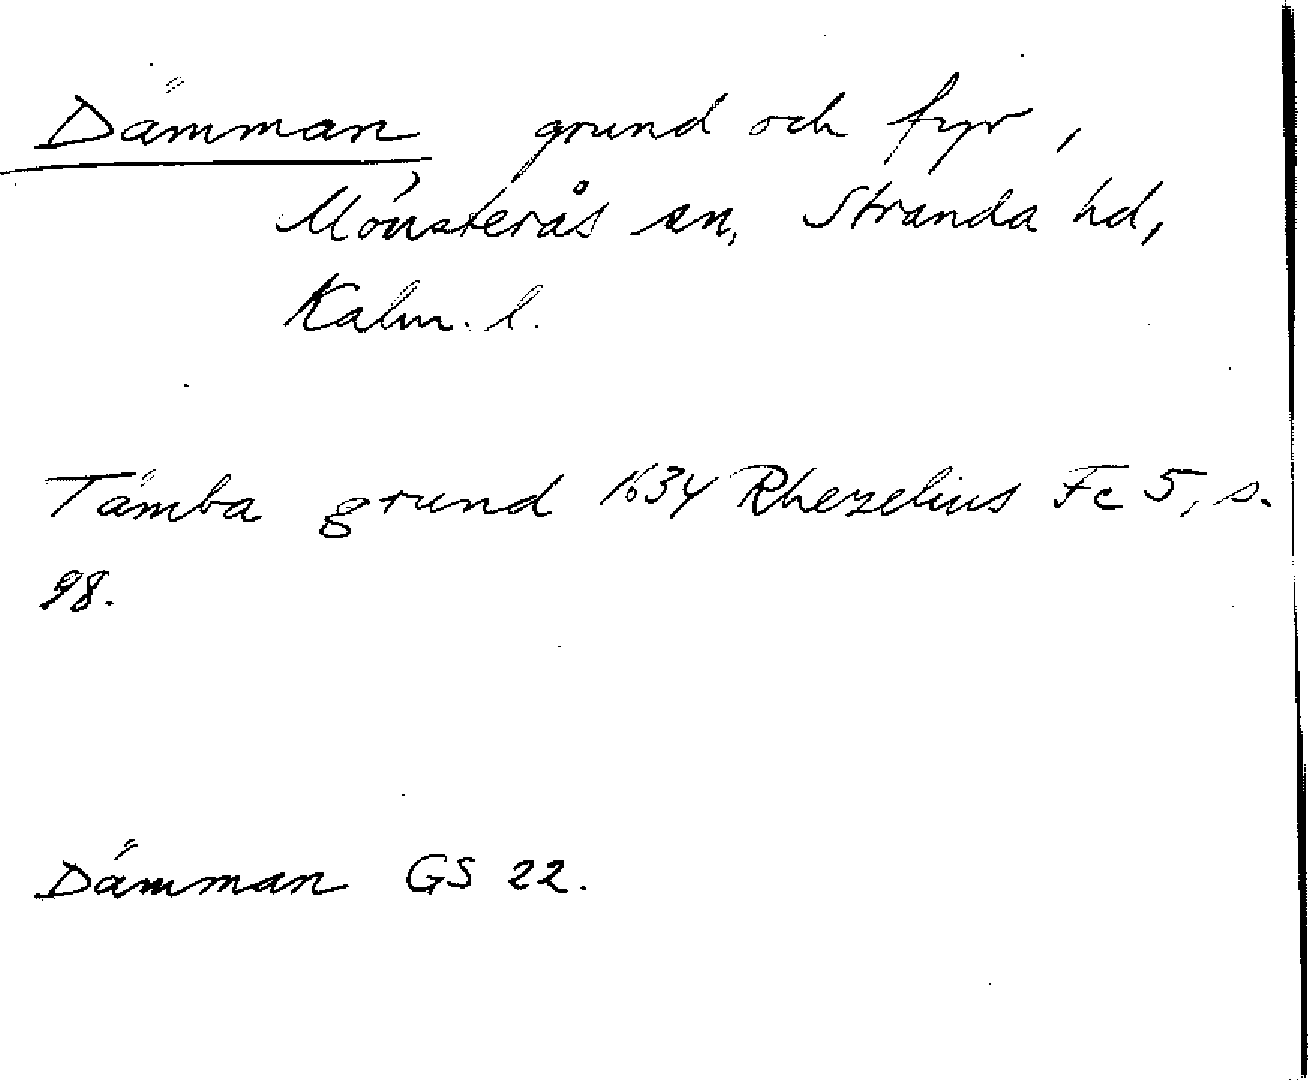 Dämman grund och fyr,
Mönsterås sn, Stranda hd,
Kalm. l.
Tämba grund 1634 Rhezelius Fc 5, s.
98.
Dämman GS 22.